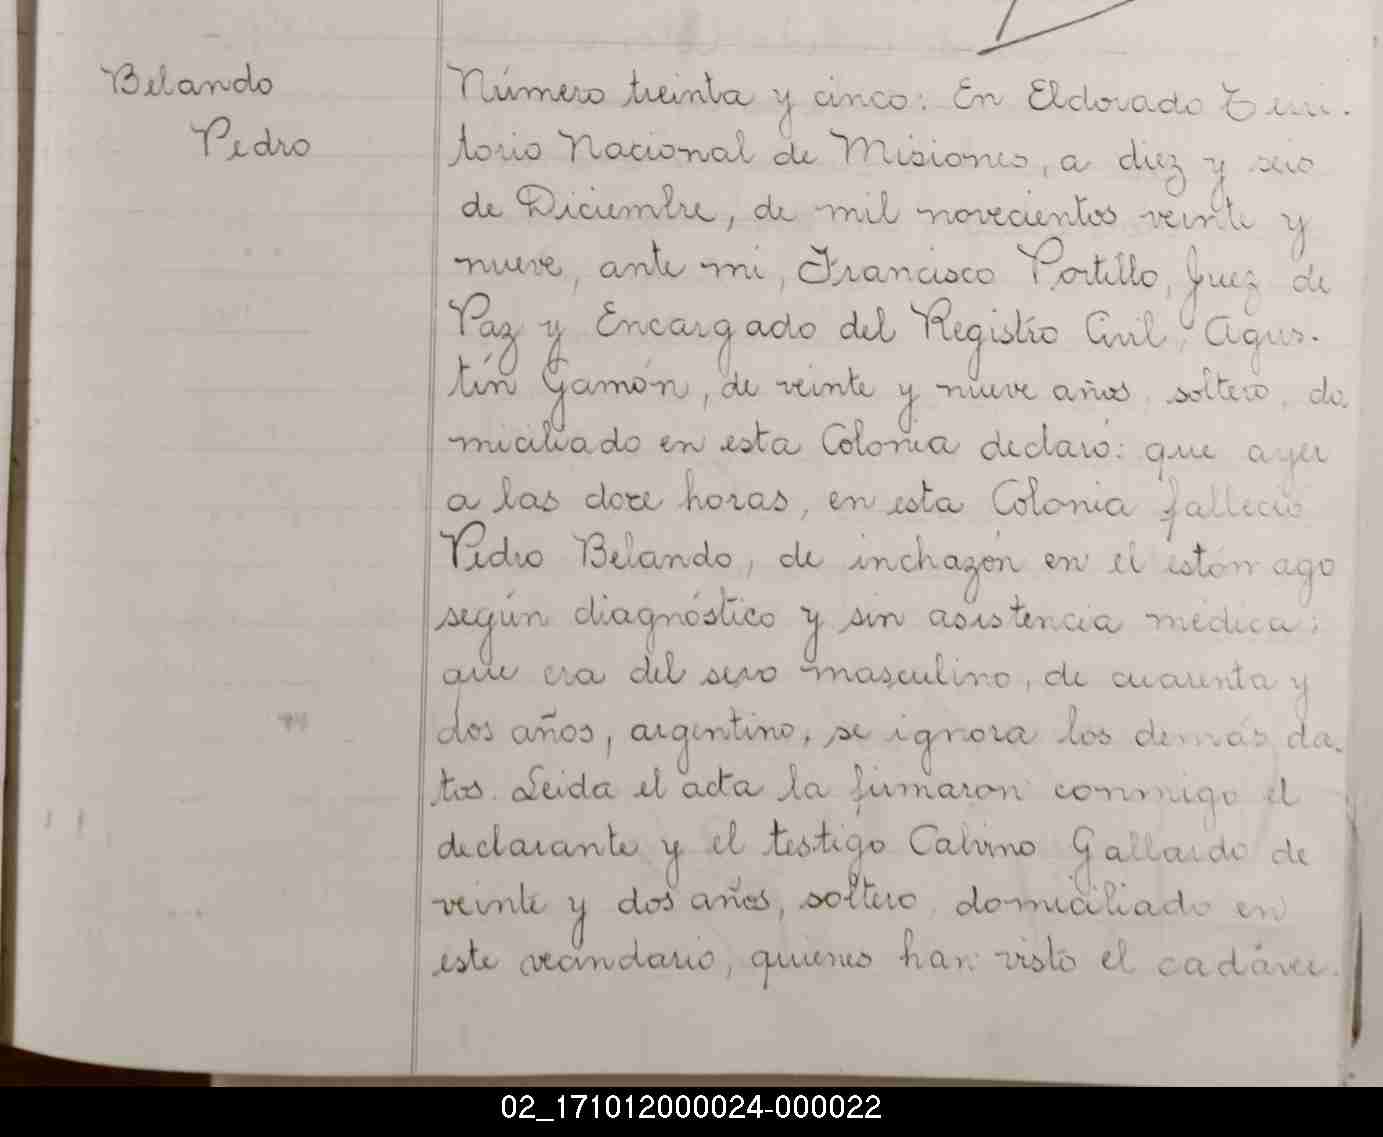 Belando
Pedro
Número treinta y cinco: En Eldorado Terri-
torio Nacional de Misiones, a diez y seis
de Diciembre, de mil novecientos veinte y
nueve, ante mi, Francisco Portillo, Juez de
Paz y Encargado del Registro Civil, Agus-
tín Gamón, de veinte y nueve años, soltero, do-
miciliado en esta Colonia declaró: que ayer
a las doce horas, en esta Colonia falleció
Pedro Belando, de inchazón en el estómago
según diagnóstico y sin asistencia médica;
que era del sexo masculino, de cuarenta y
dos años, argentino, se ignora los demás da-
tos. Leida el acta la firmaron conmigo el
declarante y el testigo Calvino Gallardo de
veinte y dos años, soltero, domiciliado en
este vecindario, quienes han visto el cadáver.
02_171012000024-000022